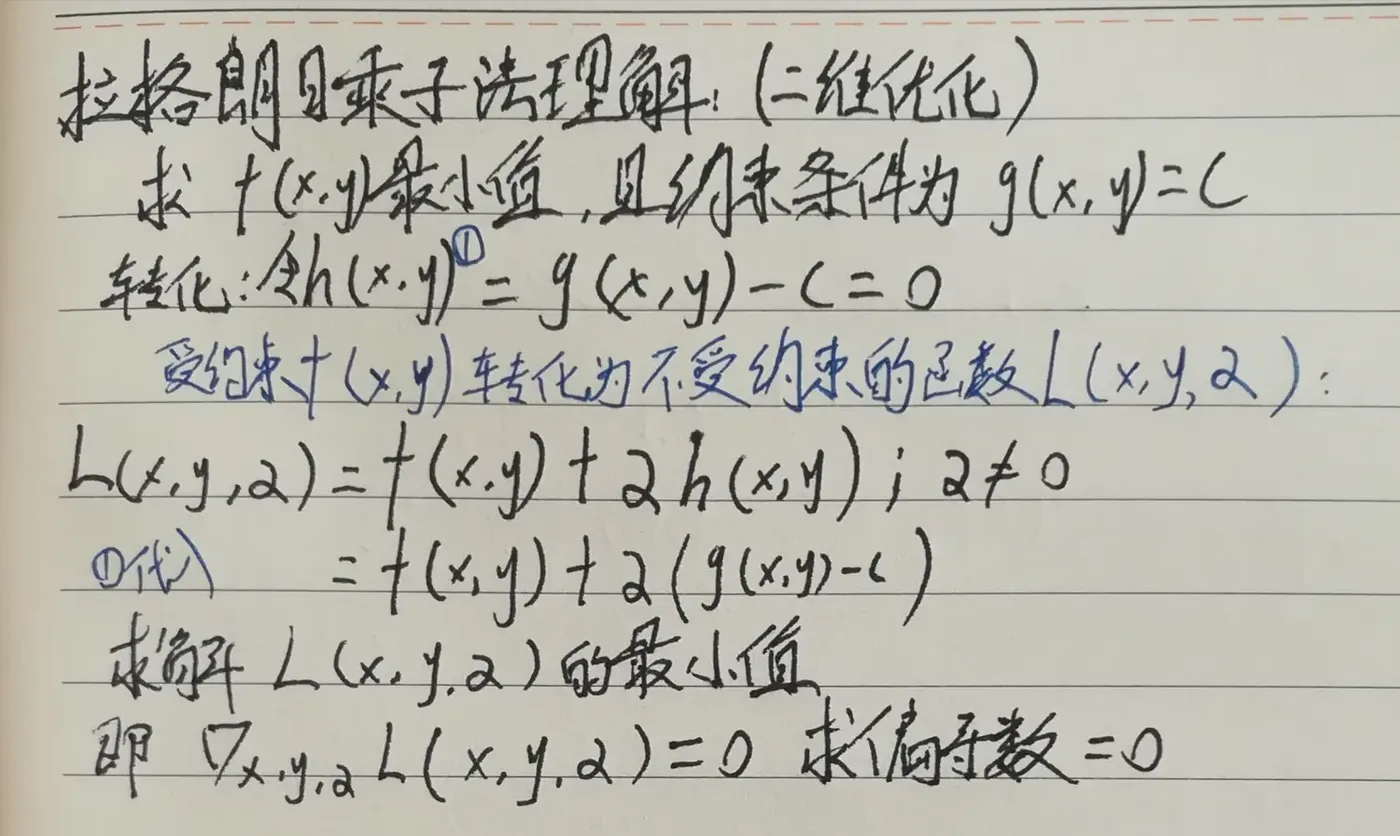 拉格朗日乘子法理解：(二维优化)
求 f(x,y)最小值,且约束条件为 g(x,y)=C
转化:令h(x,y)^① = g(x,y)-C=0
受约束f(x,y)转化为不受约束的函数L(x,y,λ):
L(x,y,λ)=f(x,y)+λh(x,y); λ≠0
①代入 =f(x,y)+λ(g(x,y)-c)
求解 L(x,y,λ)的最小值
即 ∇x,y,λ L(x,y,λ)=0 求偏导数=0